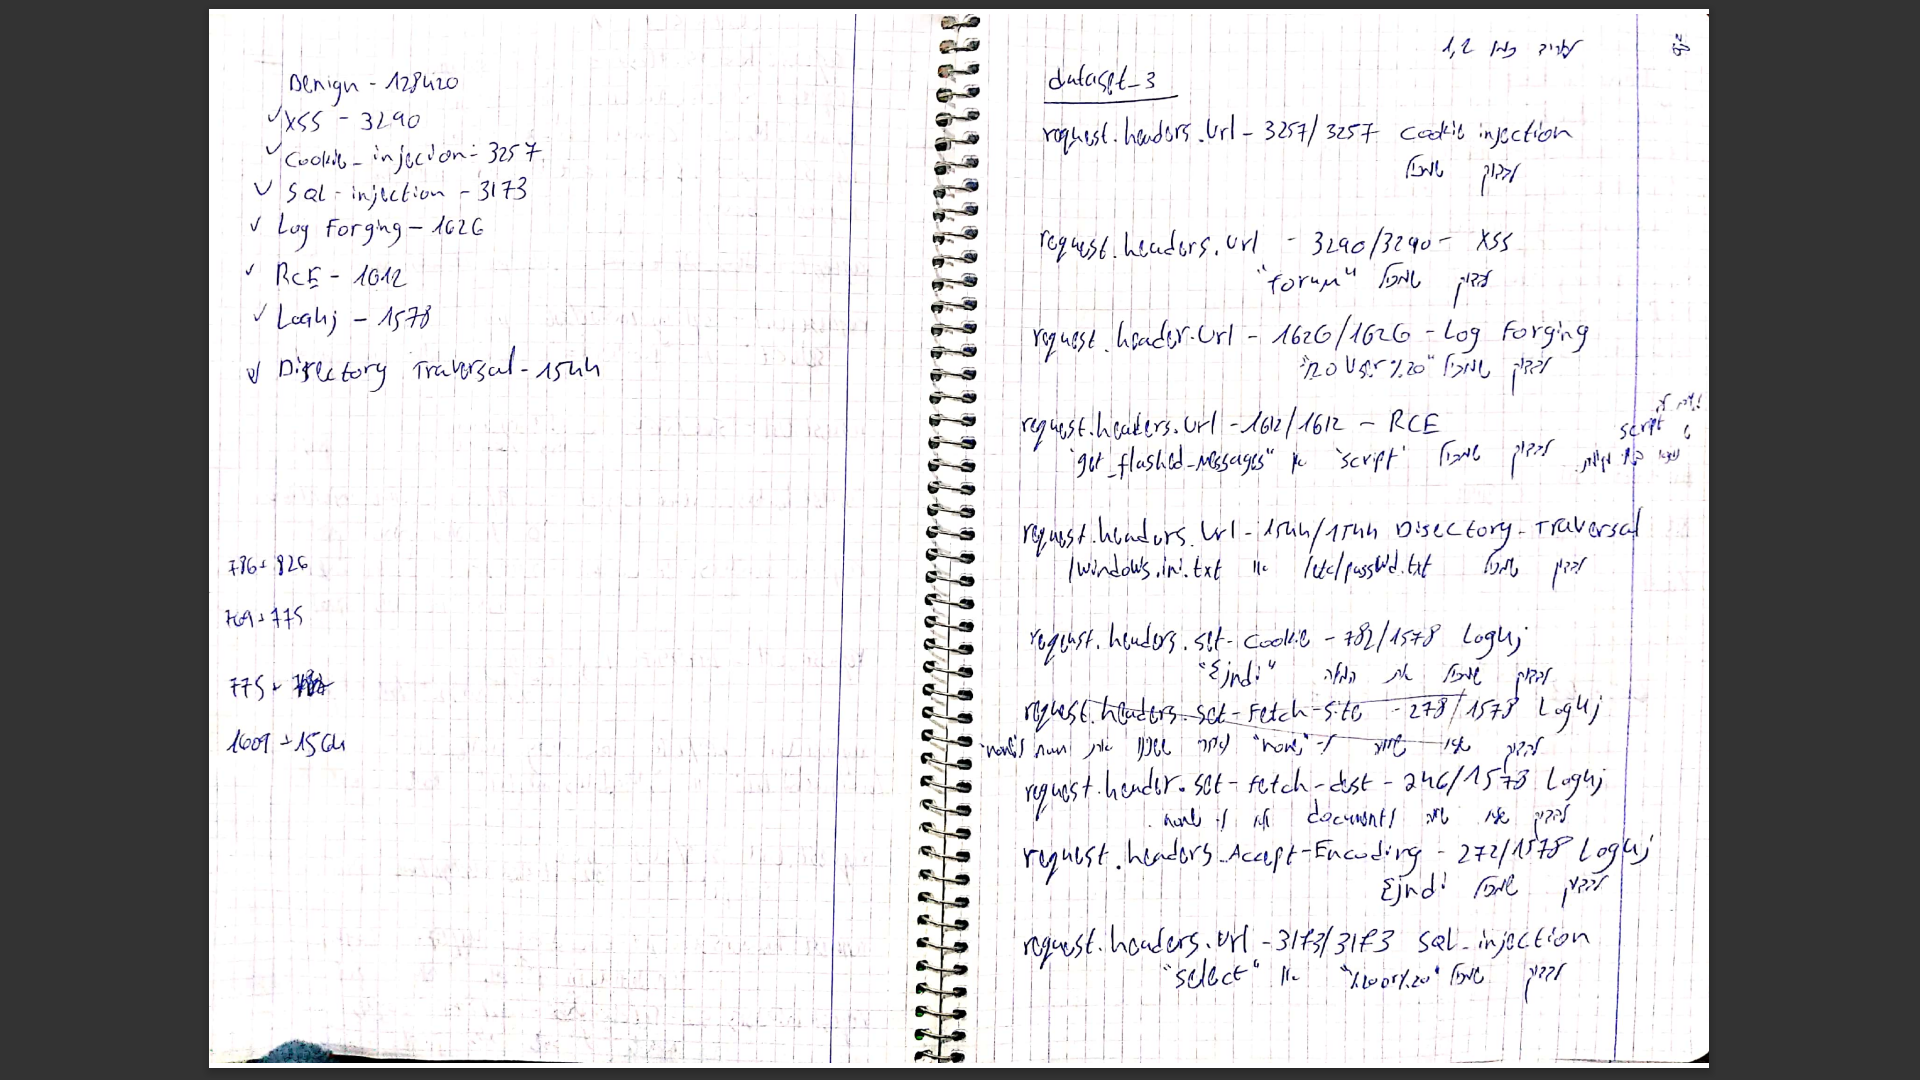 Benign - 128420
✓ XSS - 3290
✓ Cookie - injecion: 3257
✓ SQL - injection - 3173
✓ Log Forging - 1626
✓ RCE - 1612
✓ Log4j - 1578
✓ Directory Traversal - 1544
786 + 826
769 + 775
775 +
1609 + 1564
dataset_3
request.headers.Url - 3257/3257 Cookie injection
לבדוק שמכיל
request.headers.Url - 3290/3290 - XSS
לבדוק שמכיל "forum"
request.header.Url - 1626/1626 - Log Forging
לבדוק שמכיל
request.headers.Url - 1612/1612 - RCE
לבדוק שמכיל 'script' או "get_flashed_messages"
script
request.headers.Url - 1544/1544 Directory - Traversal
לבדוק שמכיל /etc/passwd.txt או /windows.ini.txt
request.headers.set-Cookie - 782/1578 Log4j
לבדוק שמכיל את המלה "{jndi"
request.headers.set-Fetch-Site - 278/1578 Log4j
request.header.set-Fetch-dest - 246/1578 Log4j
request.headers.Accept-Encoding - 272/1578 Log4j
לבדוק שמכיל {jndi
request.headers.Url - 3173/3173 SQL-injection
לבדוק שמכיל "%20or%20" או "select"